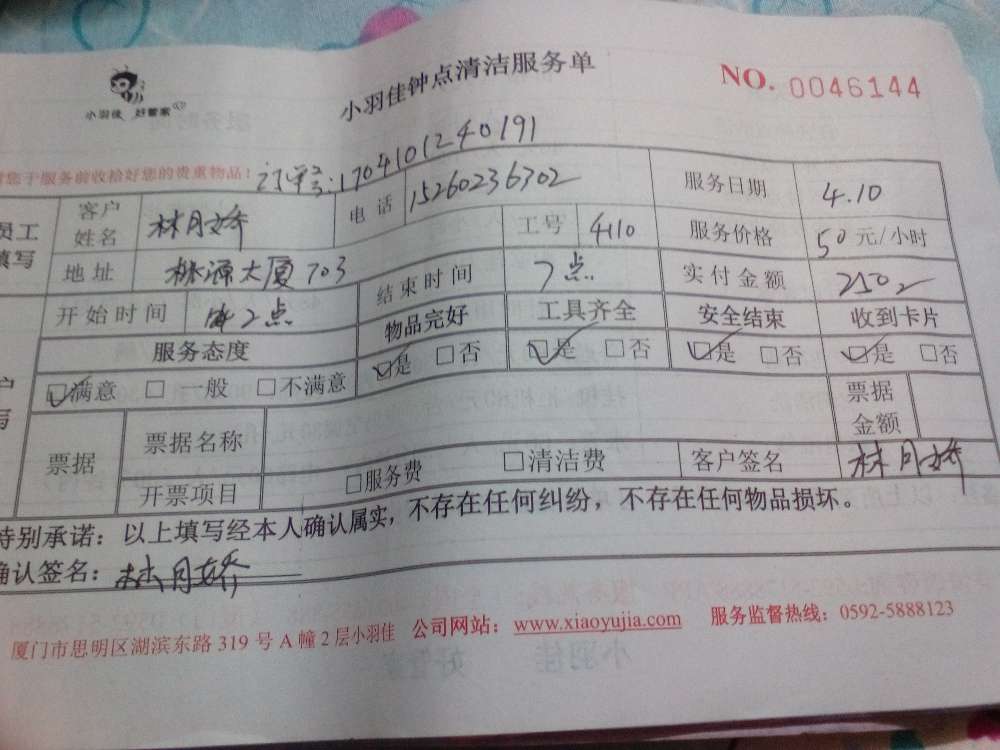 小羽佳 好管家
小羽佳钟点清洁服务单
NO. 0046144
您于服务前收拾好您的贵重物品！
订单号:170410124040191
员工填写
客户姓名 林月娇 电话 15260236302 服务日期 4.10
地址 桃源大厦703 工号 4110 服务价格 50元/小时
开始时间 2点 结束时间 7点 实付金额 250
服务态度 物品完好 工具齐全 安全结束 收到卡片
☑满意 □一般 □不满意 ☑是 □否 ☑是 □否 ☑是 □否 ☑是 □否
票据 票据名称 票据金额
开票项目 □服务费 □清洁费 客户签名 林月娇
特别承诺：以上填写经本人确认属实，不存在任何纠纷，不存在任何物品损坏。
确认签名：林月娇
厦门市思明区湖滨东路 319 号 A 幢 2 层小羽佳 公司网站：www.xiaoyujia.com 服务监督热线：0592-5888123